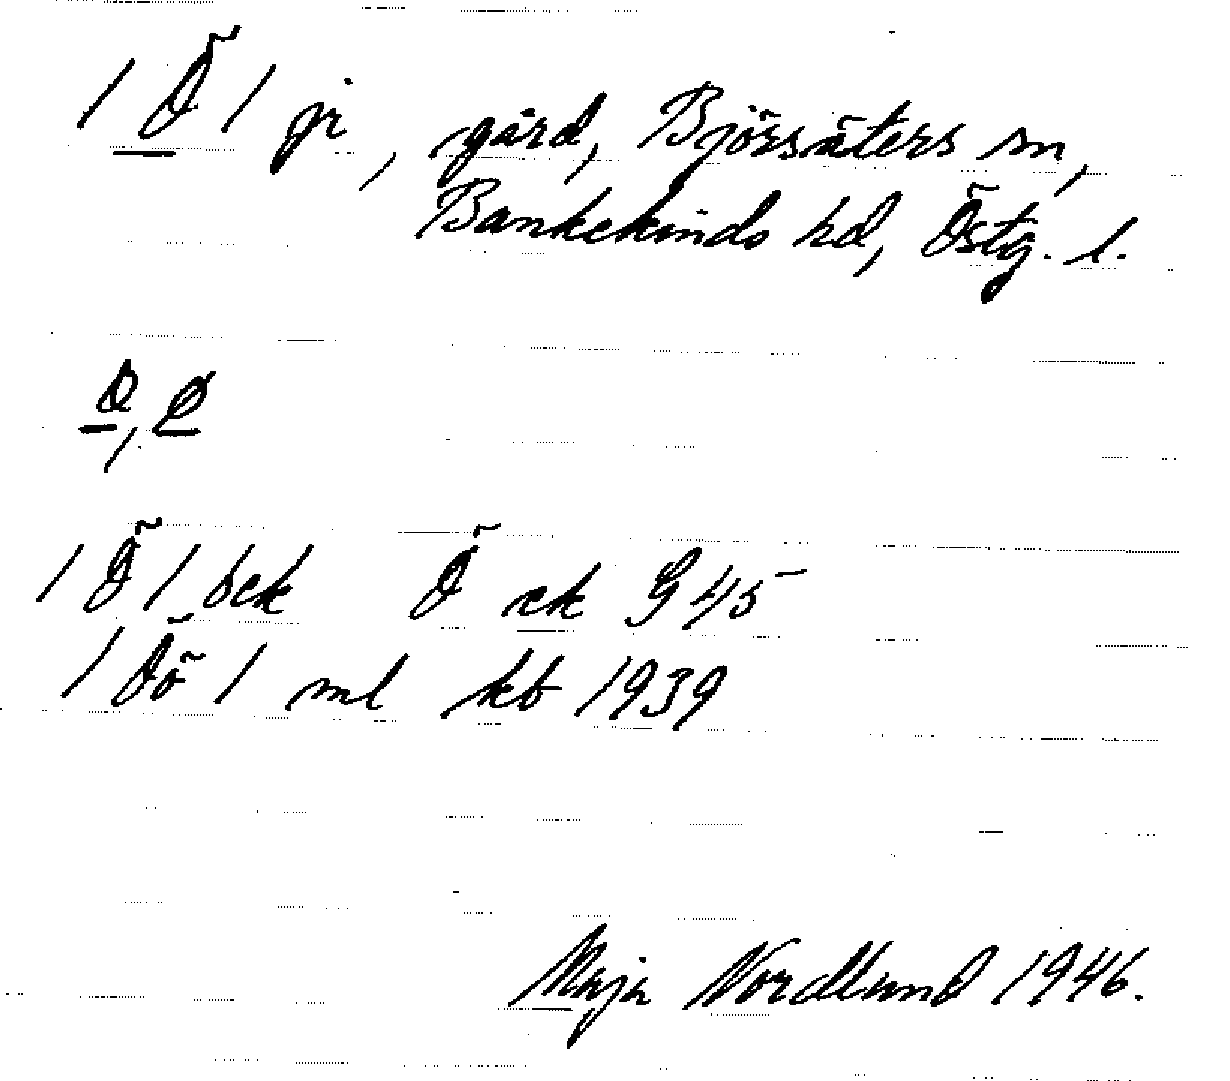 1 Ö 1 jr, gård, Björsäters sn,
Bankekinds hd, Östg. l.
1 Ö 1 bek Ö ek G 45
1 Öö 1 ml kb 1939
Maja Nordlund 1946.